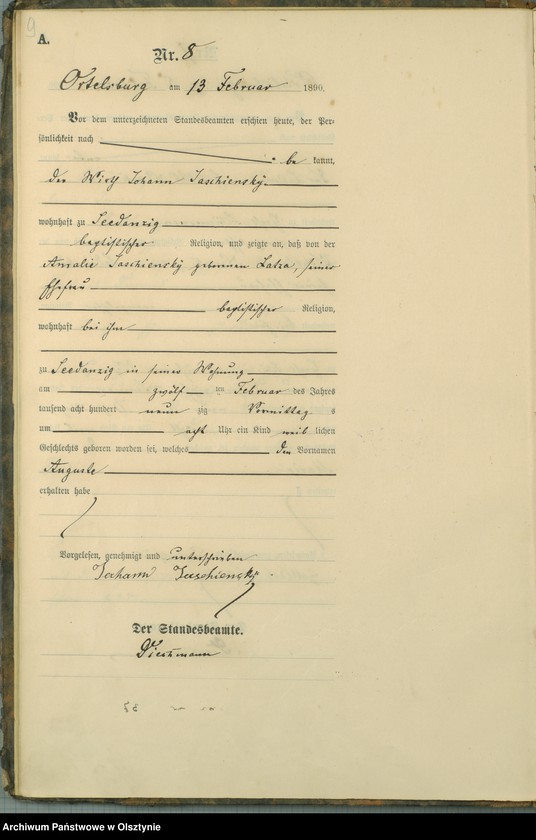 9
A.
Nr. 8
Ortelsburg am 13 Februar 1890.
Vor dem unterzeichneten Standesbeamten erschien heute, der Per-
sönlichkeit nach
be kannt,
der Wirth Johann Jaschiensky
wohnhaft zu Seedanzig
baptistischer Religion, und zeigte an, daß von der
Amalie Jaschiensky geborenen Latza, seiner
Ehefrau
baptistischer Religion,
wohnhaft bei ihm
zu Seedanzig in seiner Wohnung
am zwölf ten Februar des Jahres
tausend acht hundert neun zig Vormittag s
um acht Uhr ein Kind weib lichen
Geschlechts geboren worden sei, welches den Vornamen
Auguste
erhalten habe
Vorgelesen, genehmigt und unterschrieben
Johann Jaschiensky
Der Standesbeamte.
Archiwum Państwowe w Olsztynie